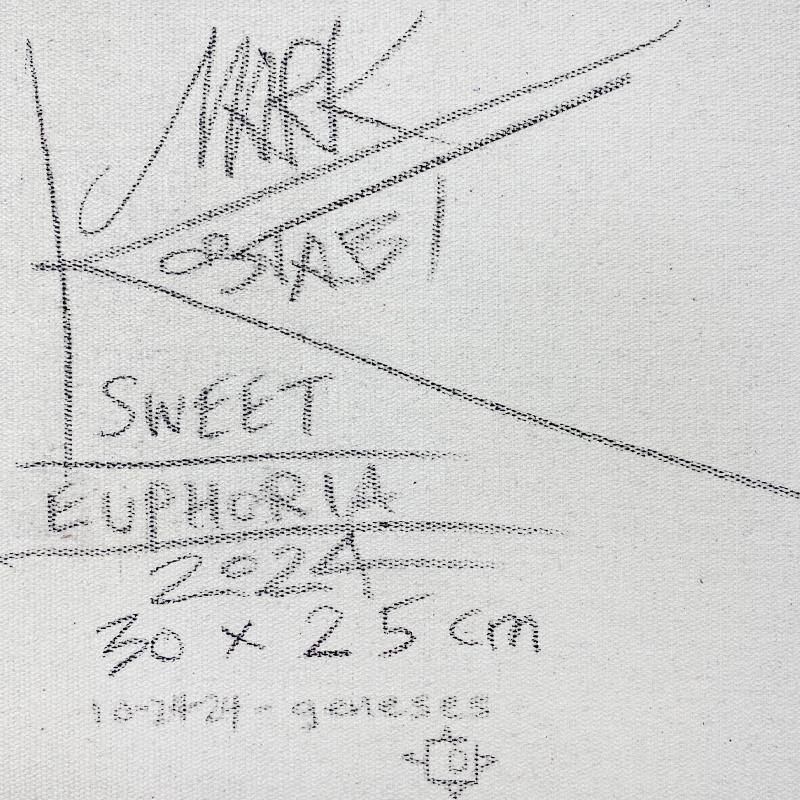 MARK
SWEET
EUPHORIA
2024
30 x 25 cm
10-24-24 - geneses
D